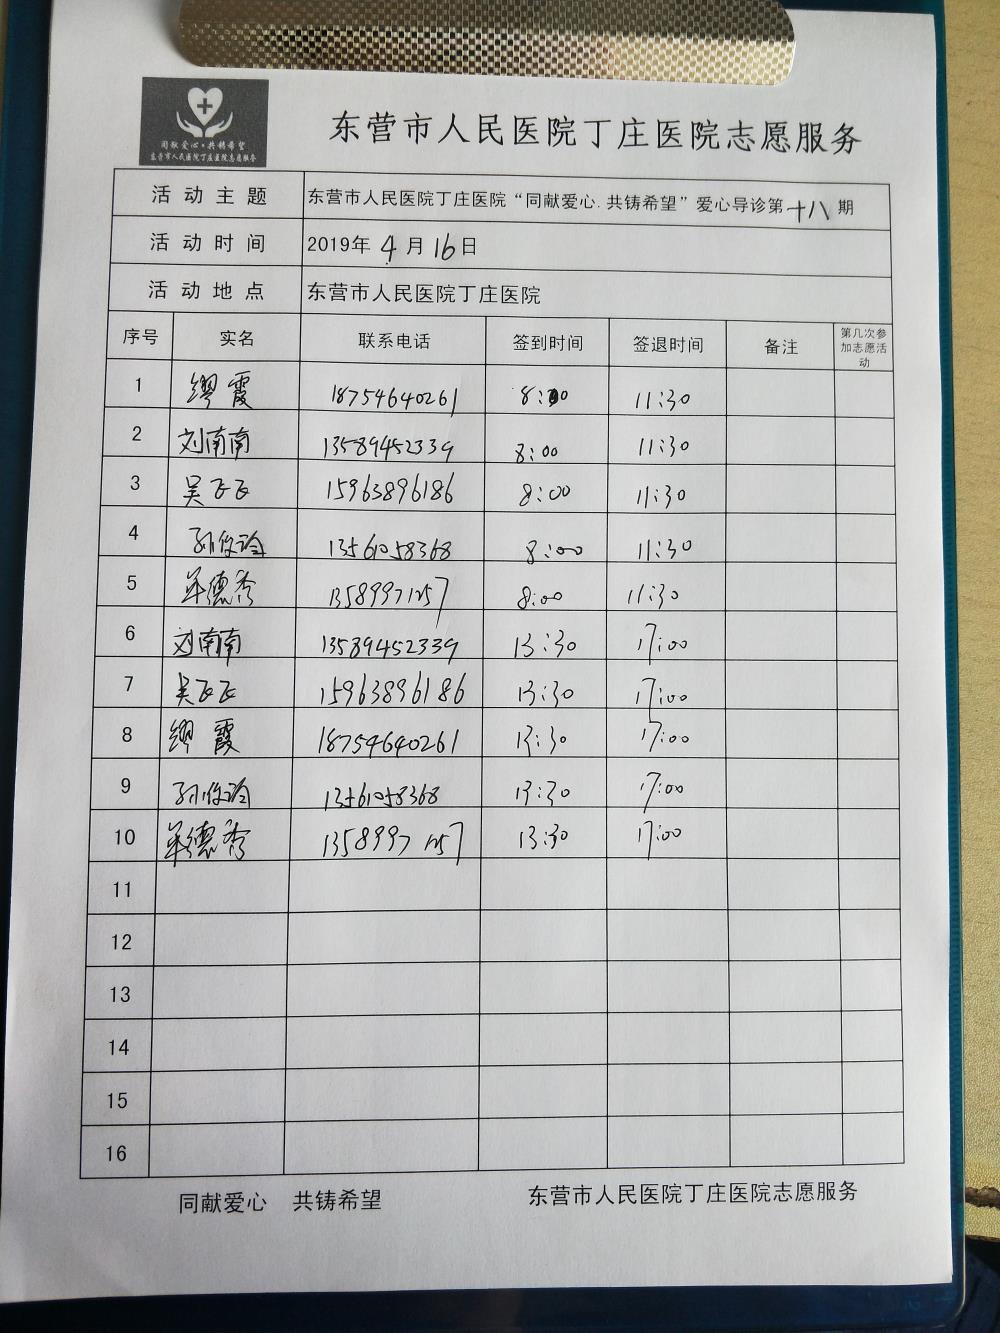 同献爱心·共铸希望
东营市人民医院丁庄医院志愿服务
东营市人民医院丁庄医院志愿服务
活动主题 东营市人民医院丁庄医院“同献爱心.共铸希望”爱心导诊第十八期
活动时间 2019年 4 月 16 日
活动地点 东营市人民医院丁庄医院
序号 实名 联系电话 签到时间 签退时间 备注 第几次参加志愿活动
1 缪霞 18754640261 8:00 11:30
2 刘南南 13589452339 8:00 11:30
3 吴飞飞 15963896186 8:00 11:30
4 孙 13561058368 8:00 11:30
5 单德秀 13589971257 8:00 11:30
6 刘南南 13589452339 13:30 17:00
7 吴飞飞 15963896186 13:30 17:00
8 缪霞 18754640261 13:30 17:00
9 孙 13561058368 13:30 17:00
10 单德秀 13589971257 13:30 17:00
11
12
13
14
15
16
同献爱心 共铸希望 东营市人民医院丁庄医院志愿服务